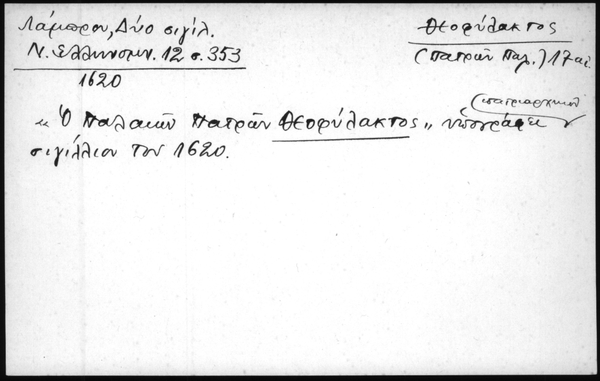 Λάμπρου, Δύο σιγίλ.
Ν. Ελληνομν. 12 σ. 353
1620
Θεοφύλακτος
(Πατρῶν Παλ.) 17 αἰ.
(πατριαρχικὸν
« Ὁ Παλαιῶν Πατρῶν Θεοφύλακτος » ὑπογράφει
σιγίλλιον τοῦ 1620.